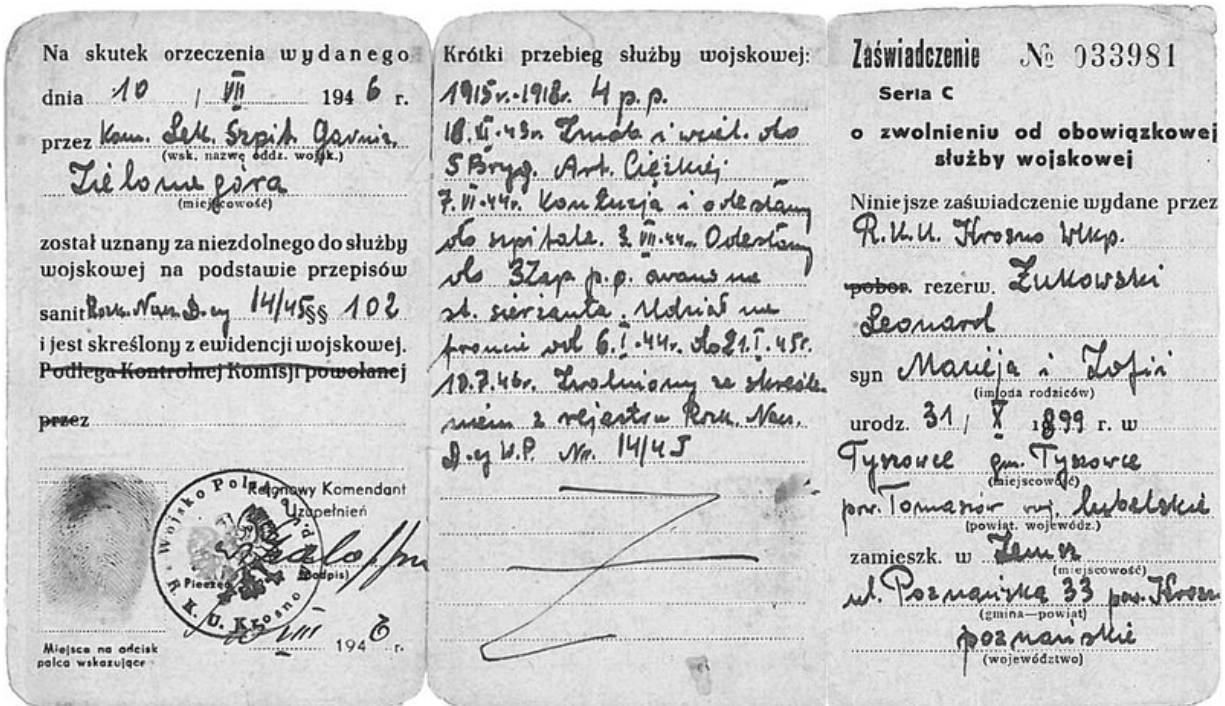 Na skutek orzeczenia wydanego
dnia 10 / VII 1946 r.
przez Kom. Lek. Szpit. Garniz.
(wsk. nazwę oddz. wojsk.)
Zielona góra
(miejscowość)
został uznany za niezdolnego do służby
wojskowej na podstawie przepisów
sanit Rozk. Nacz. D-cy 14/45 §§ 102
i jest skreślony z ewidencji wojskowej.
Podlega Kontrolnej Komisji powołanej
przez
Rejonowy Komendant
Uzupełnień
Pieczęć
(podpis)
Wojsko Polskie
R. K. U. Krosno
VIII 1946 r.
Miejsce na odcisk
palca wskazujące
Krótki przebieg służby wojskowej:
1915r.-1918r. 4 p.p.
18.VI.43r. Zmob. i wciel. do
5 Bryg. Art. Ciężkiej
7.VI.44r. Kontuzja i odesłany
do szpitala. 3.VII.44r. Odesłany
do 3 Zap. p.p. awans na
st. sierżanta. Udział na
froncie od 6.I.44r. do 21.I.45r.
10.7.46r. Zwolniony ze skreśle-
niem z rejestru Rozk. Nacz.
D-cy W.P. Nr. 14/45
Zaświadczenie № 033981
Seria C
o zwolnieniu od obowiązkowej
służby wojskowej
Niniejsze zaświadczenie wydane przez
R.K.U. Krosno Wlkp.
pobor. rezerw. Żukowski
Leonard
syn Macieja i Zofii
(imiona rodziców)
urodz. 31 / X 1899 r. w
Tyszowce gm. Tyszowce
(miejscowość)
pow. Tomaszów woj. lubelskie
(powiat. wojewódz.)
zamieszk. w
(miejscowość)
ul. Poznańska 33 pow. Krosno
(gmina—powiat)
poznańskie
(województwo)